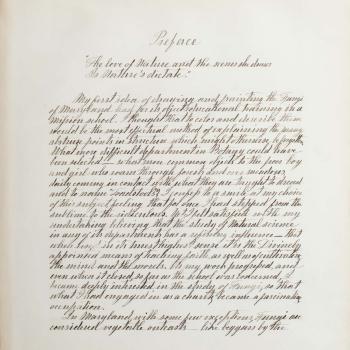 Preface
"The love of Nature and the scenes she draws
Is Nature's dictate."
My first idea of drawing and painting the Fungi
of Maryland, had for its object educational training in a
Mission school. I thought that to color and describe them
would be the most effectual method of explaining the many
abstruse points in
What more difficult department in Botany could have
been selected – what more common objects to the poor boy
and girl who roam through forest and over meadows,
daily coming in contact with what they are taught to dread
and to name "toadstools". I confess they a smile at my choice
of this subject feeling that for once I had stepped from the
sublime to the ridiculous. Yet I felt satisfied with my
undertaking believing that the study of Natural science
in any of its departments has a refining influence – that
when used in its truest, highest sense it is the Divinely
appointed means of teaching faith as well as cultivating
the mind and the morals. As my work progressed, and
even when it closed so far as the school was concerned, I
became deeply interested in the study of Fungi, so that
what I had engaged in as a charity became a fascinating
occupation.
In Maryland, with some few exceptions, Fungi are
considered vegetable outcasts – like beggars by the